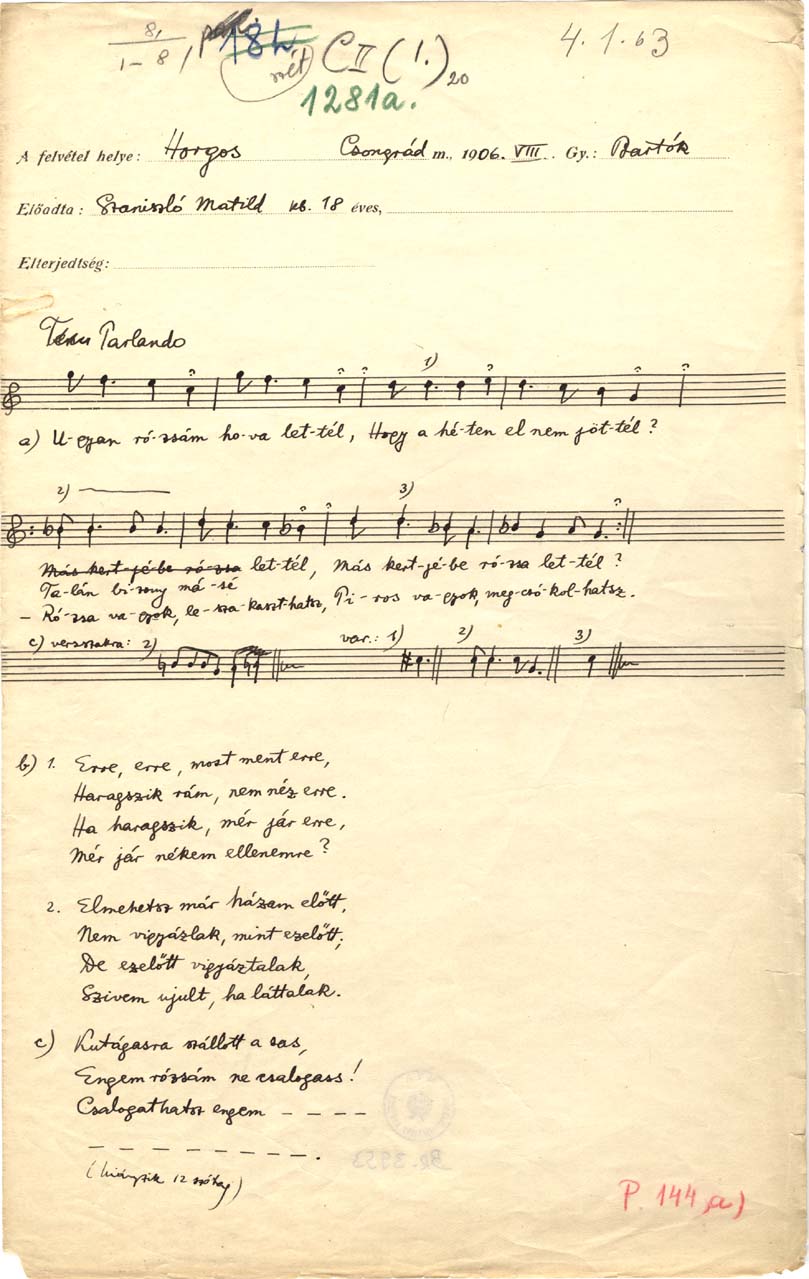 8,
1–8,
18h
szét
C II (1.) 20
4.1.63
1281a.
A felvétel helye: Horgos Csongrád m., 1906. VIII. Gy.: Bartók
Előadta: Szaniszló Matild kb. 18 éves,
Elterjedtség:
Parlando
1)
a) U-gyan ró-zsám ho-va let-tél, Hogy a hé-ten el nem jöt-tél?
2) 3)
Más kert-jé-be ró-zsa let-tél, Más kert-jé-be ró-zsa let-tél?
Ta-lán bi-zony má-sé
– Ró-zsa va-gyok, le-sza-kaszt-hatsz, Pi-ros va-gyok, meg-csó-kol-hatsz.
c) versszakra: 2) var.: 1) 2) 3)
b) 1. Erre, erre, most ment erre,
Haragszik rám, nem néz erre.
Ha haragszik, mér jár erre,
Mér jár nékem ellenemre?
2. Elmehetsz már házam előtt,
Nem vigyázlak, mint ezelőtt;
De ezelőtt vigyáztalak,
Szivem ujult, ha láttalak.
c) Kutágasra szállott a sas,
Engem rózsám ne csalogass!
Csalogathatsz engem – – – –
– – – – – – – – .
(hiányzik 12 szótag)
Br. 3953
P. 144, a)